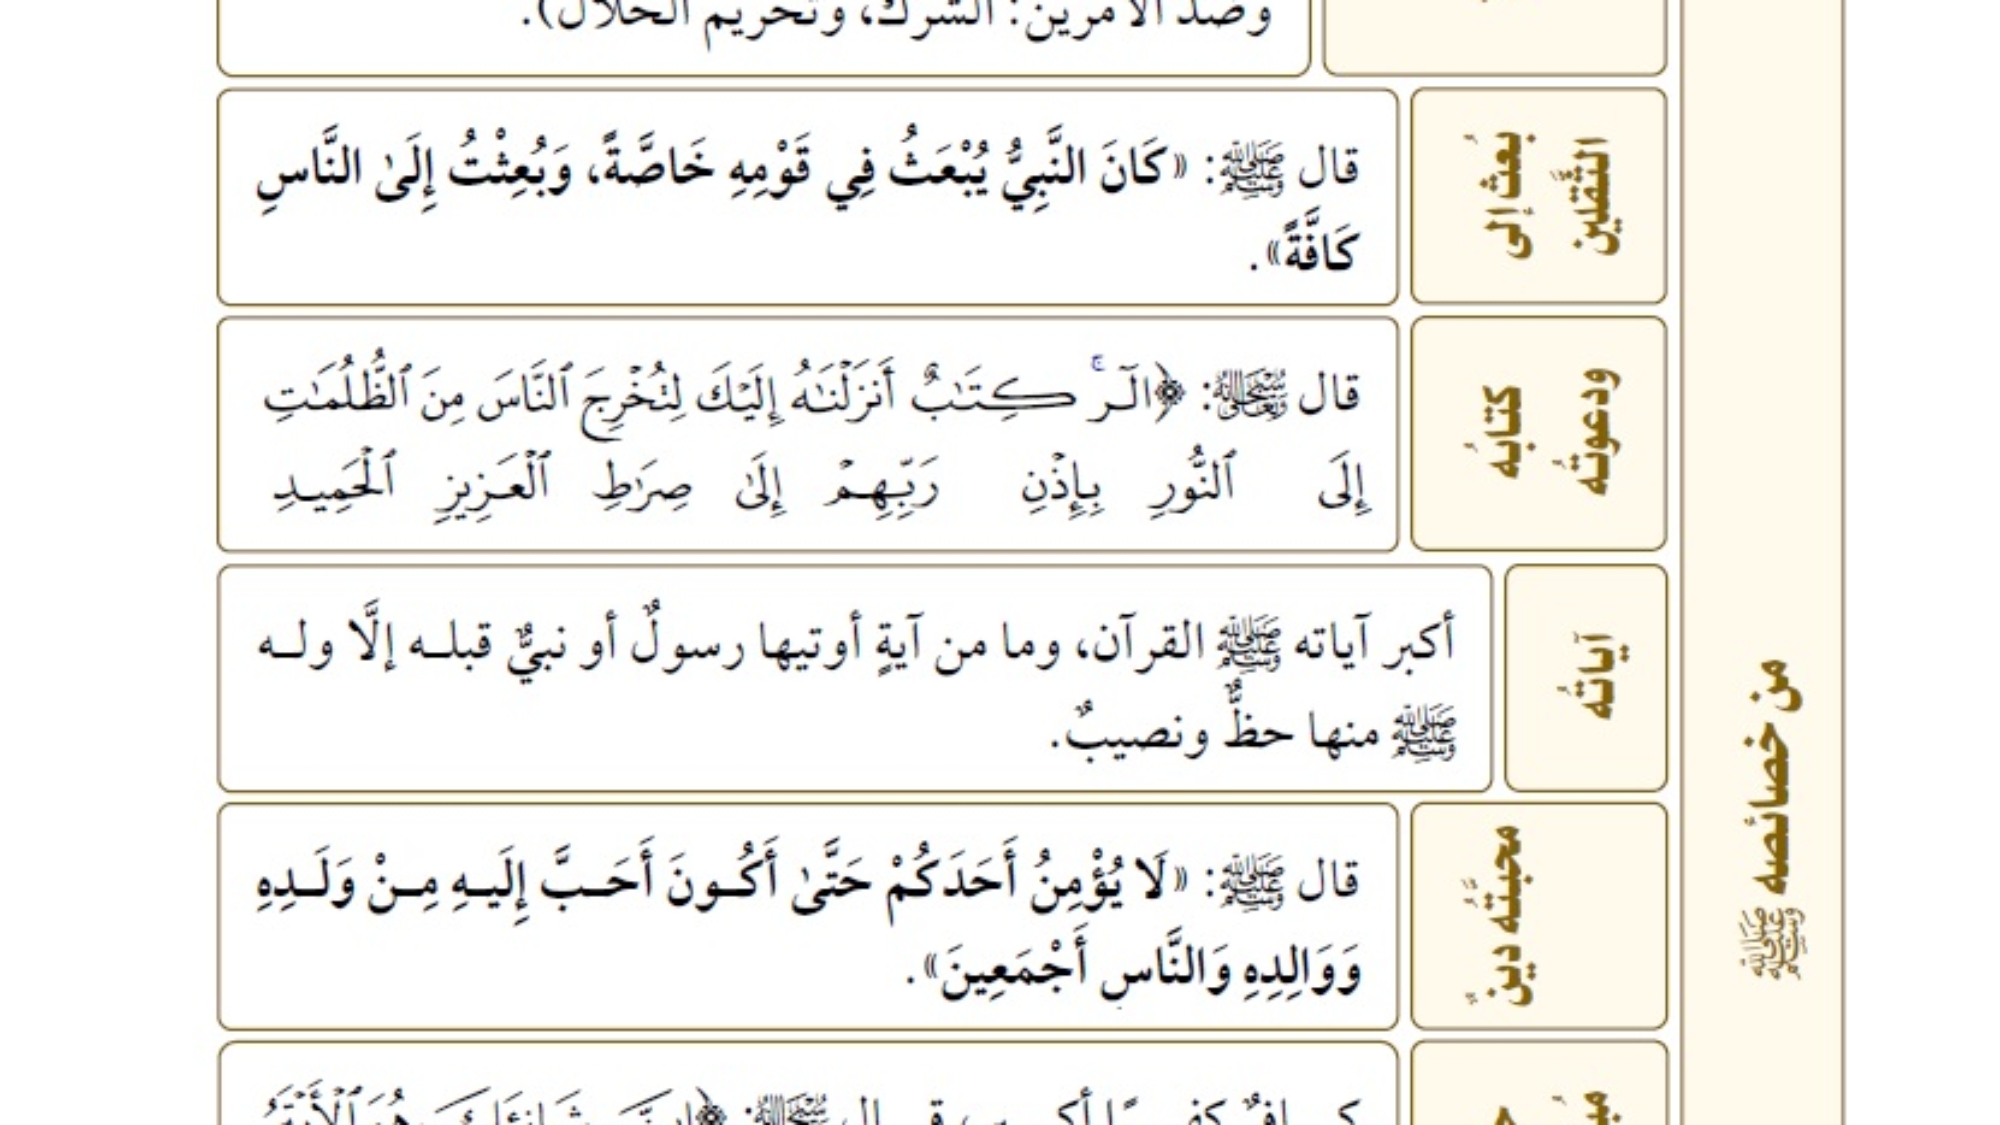 وضد الأمرين: الشرك، وتحريم الحلال).
من خصائصه ﷺ
بُعث إلى
الثَّقلين
قال ﷺ: «كَانَ النَّبِيُّ يُبْعَثُ فِي قَوْمِهِ خَاصَّةً، وَبُعِثْتُ إِلَىٰ النَّاسِ
كَافَّةً».
كتابهُ
ودعوتهُ
قال سُبْحَانَهُ وَتَعَالَى: ﴿الٓرۚ كِتَٰبٌ أَنزَلْنَٰهُ إِلَيْكَ لِتُخْرِجَ ٱلنَّاسَ مِنَ ٱلظُّلُمَٰتِ
إِلَى ٱلنُّورِ بِإِذْنِ رَبِّهِمْ إِلَىٰ صِرَٰطِ ٱلْعَزِيزِ ٱلْحَمِيدِ
آياتهُ
أكبر آياته ﷺ القرآن، وما من آيةٍ أوتيها رسولٌ أو نبيٌّ قبله إلَّا وله
ﷺ منها حظٌّ ونصيبٌ.
محبَّتُه دينٌ
قال ﷺ: «لَا يُؤْمِنُ أَحَدَكُمْ حَتَّىٰ أَكُونَ أَحَبَّ إِلَيهِ مِنْ وَلَدِهِ
وَوَالِدِهِ وَالنَّاسِ أَجْمَعِينَ».